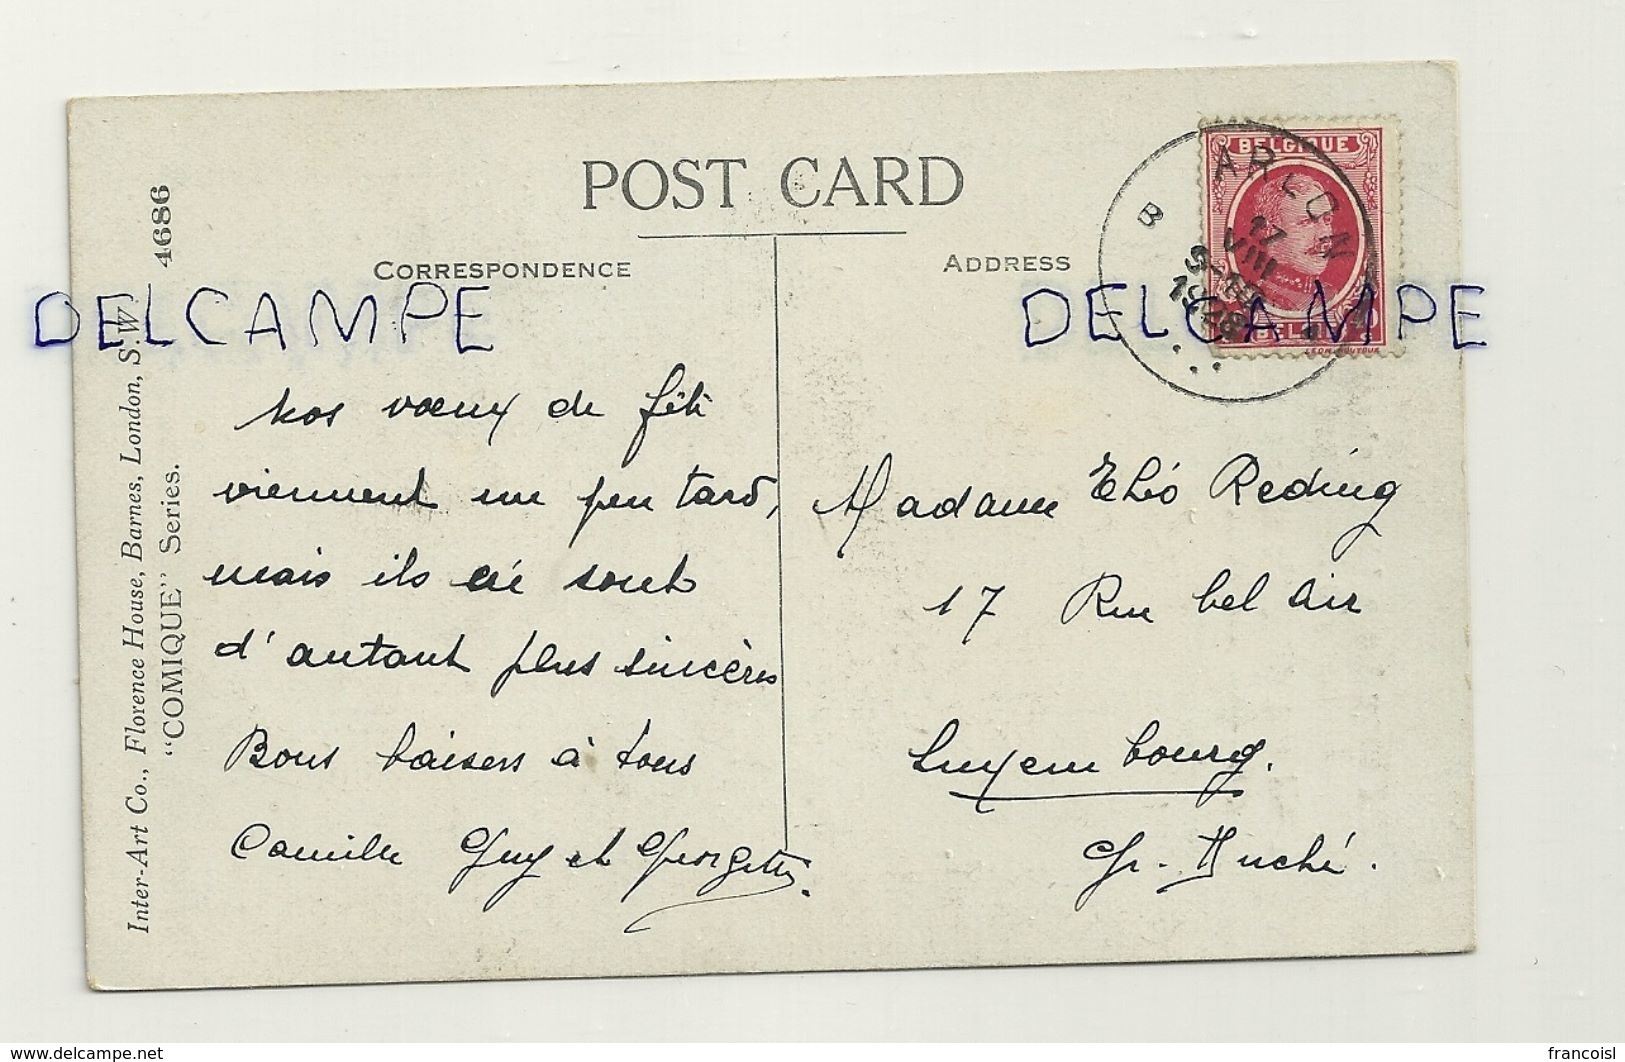 POST CARD
CORRESPONDENCE
ADDRESS
4686
Inter-Art Co., Florence House, Barnes, London, S.W.
"COMIQUE" Series.
DELCAMPE
DELCAMPE
BELGIQUE
BELGIË
ARLON
B
17
VIII
1928
Nos vœux de fête
viennent un peu tard,
mais ils en sont
d'autant plus sincères
Bons baisers à tous
Camille Guy et Georgette.
Madame Théo Reding
17 Rue bel air
Luxembourg.
Gr. Duché.
www.delcampe.net
francoisl